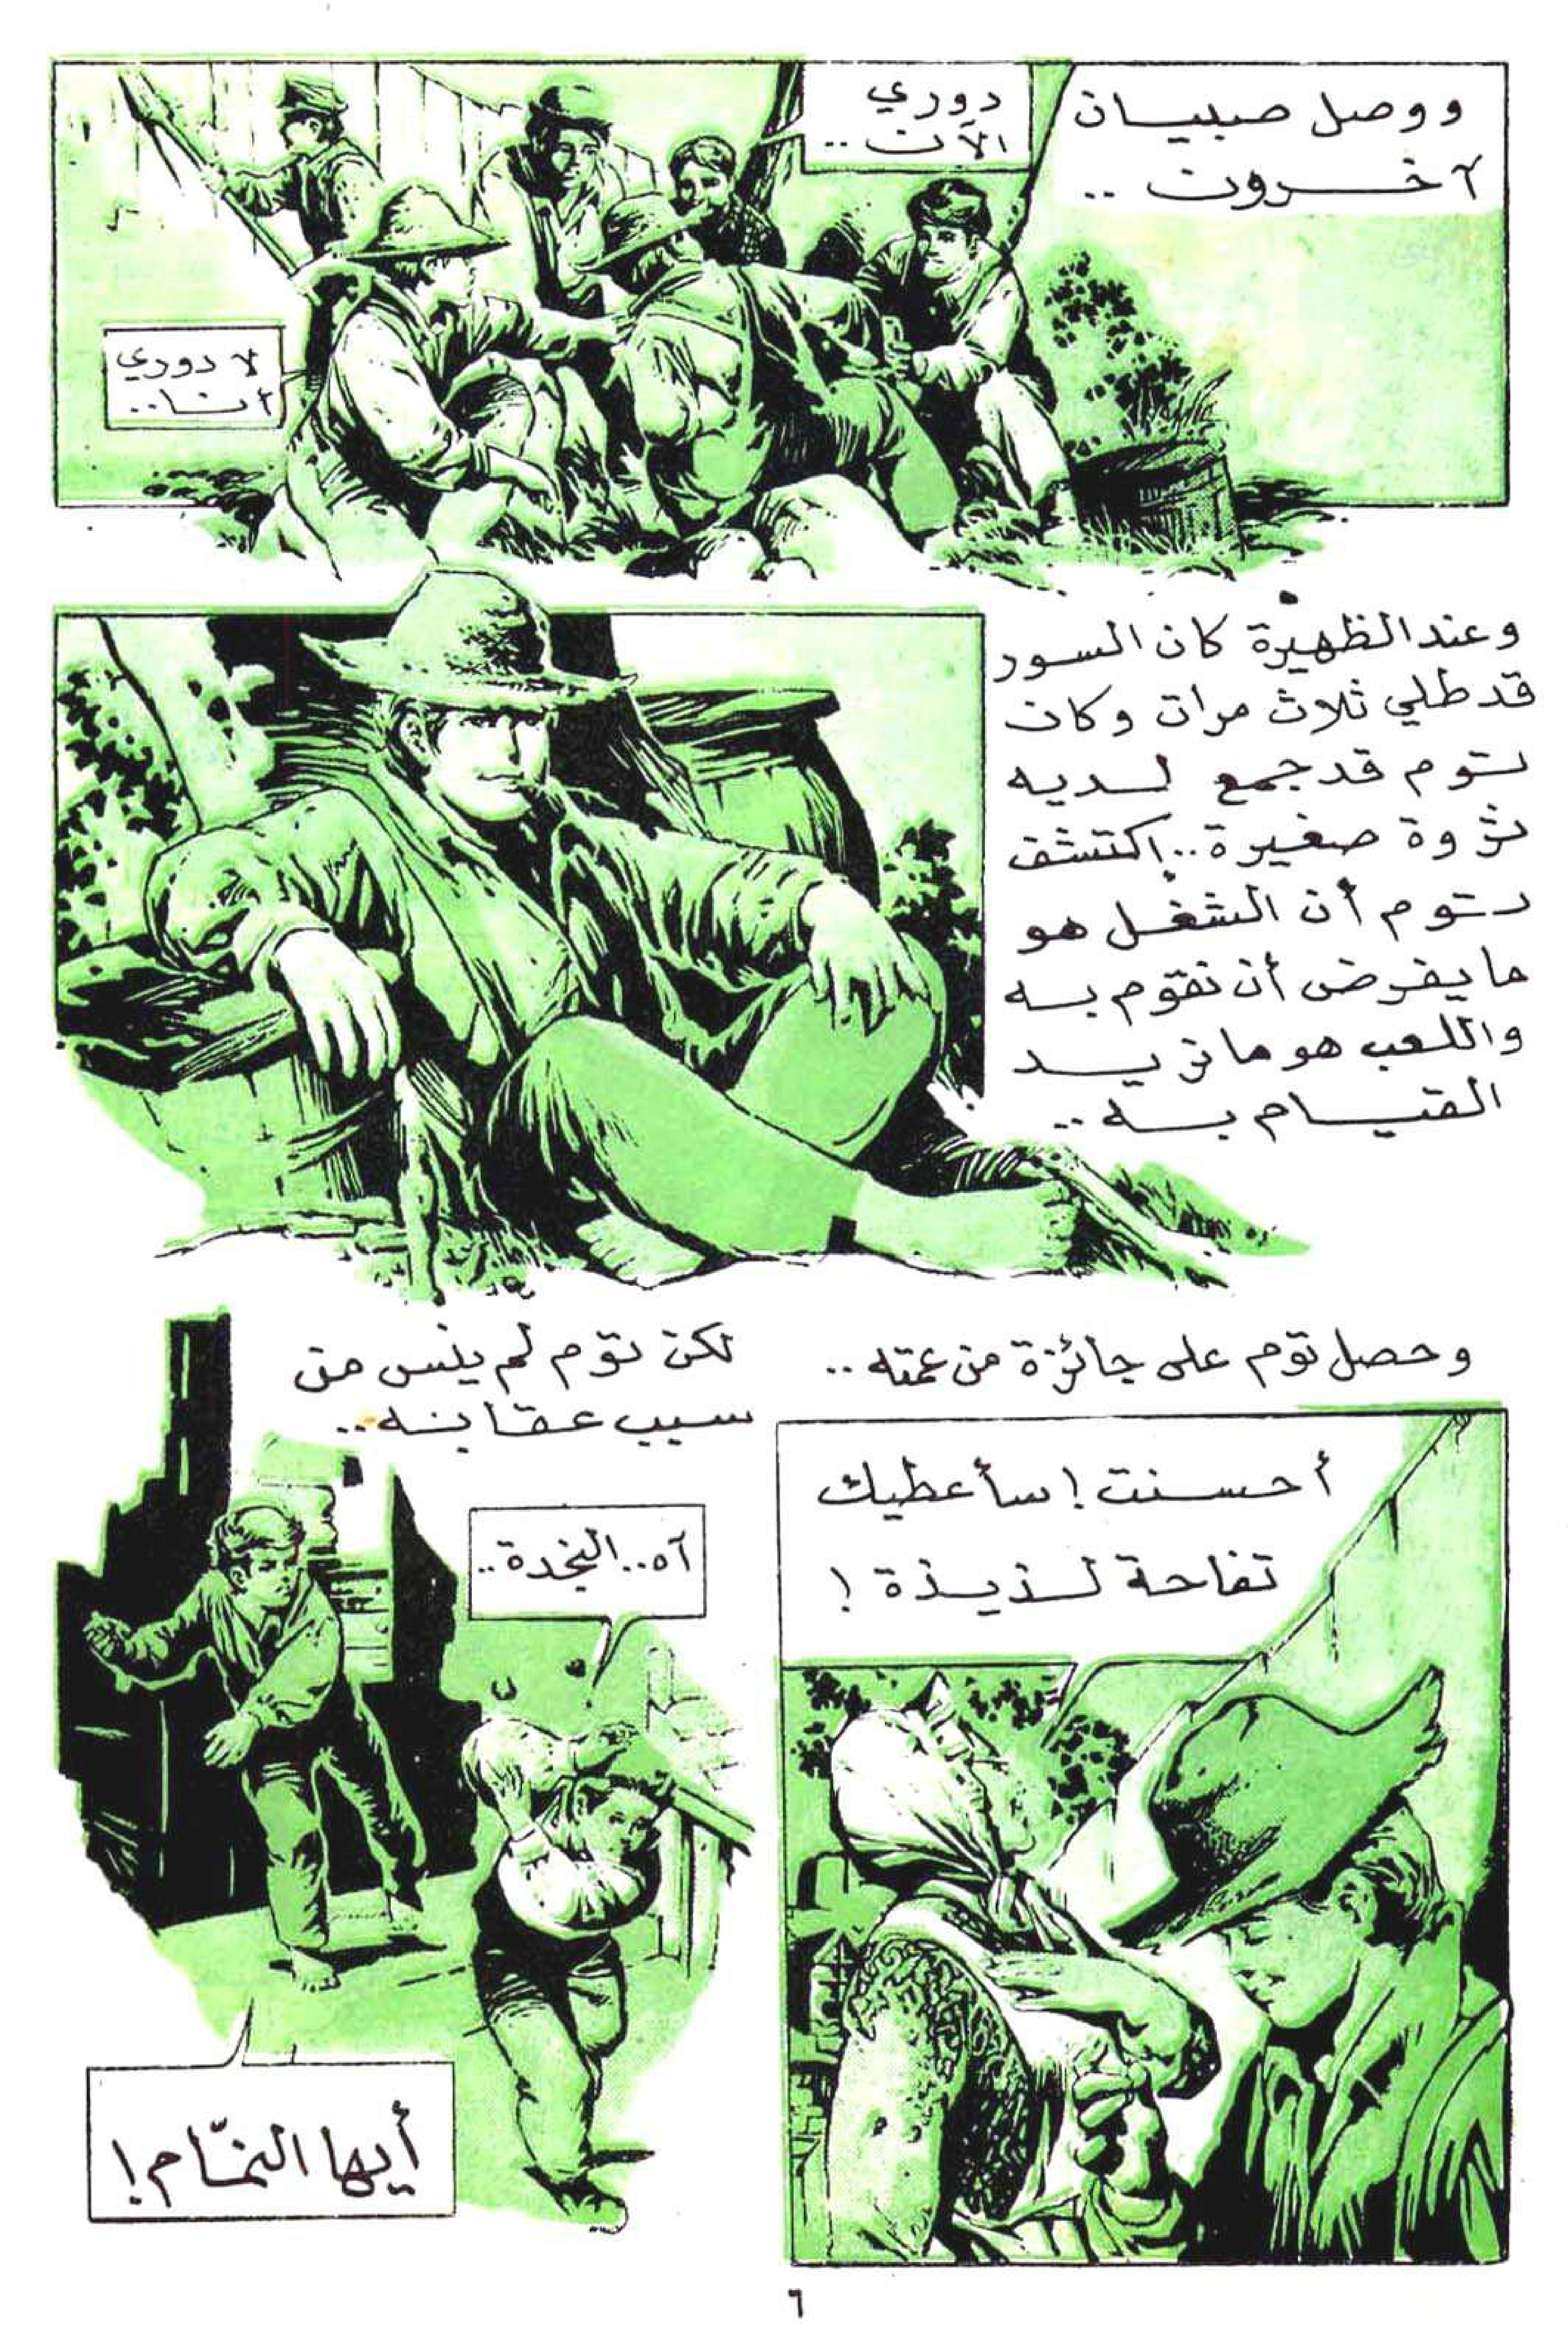 ووصل صبيان
آخرون ..
دوري
الآن ..
لا دوري
أنا ..
وعند الظهيرة كان السور
قد طلي ثلاث مرات وكان
توم قد جمع لديه
ثروة صغيرة .. إكتشف
توم أن الشغل هو
ما يفرض أن نقوم به
واللعب هو ما نريد
القيام به ..
وحصل توم على جائزة من عمته ..
أحسنت ! سأعطيك
تفاحة لذيذة !
لكن توم لم ينس من
سبب عقابه ..
آه .. النجدة ..
أيها النمّام !
٦